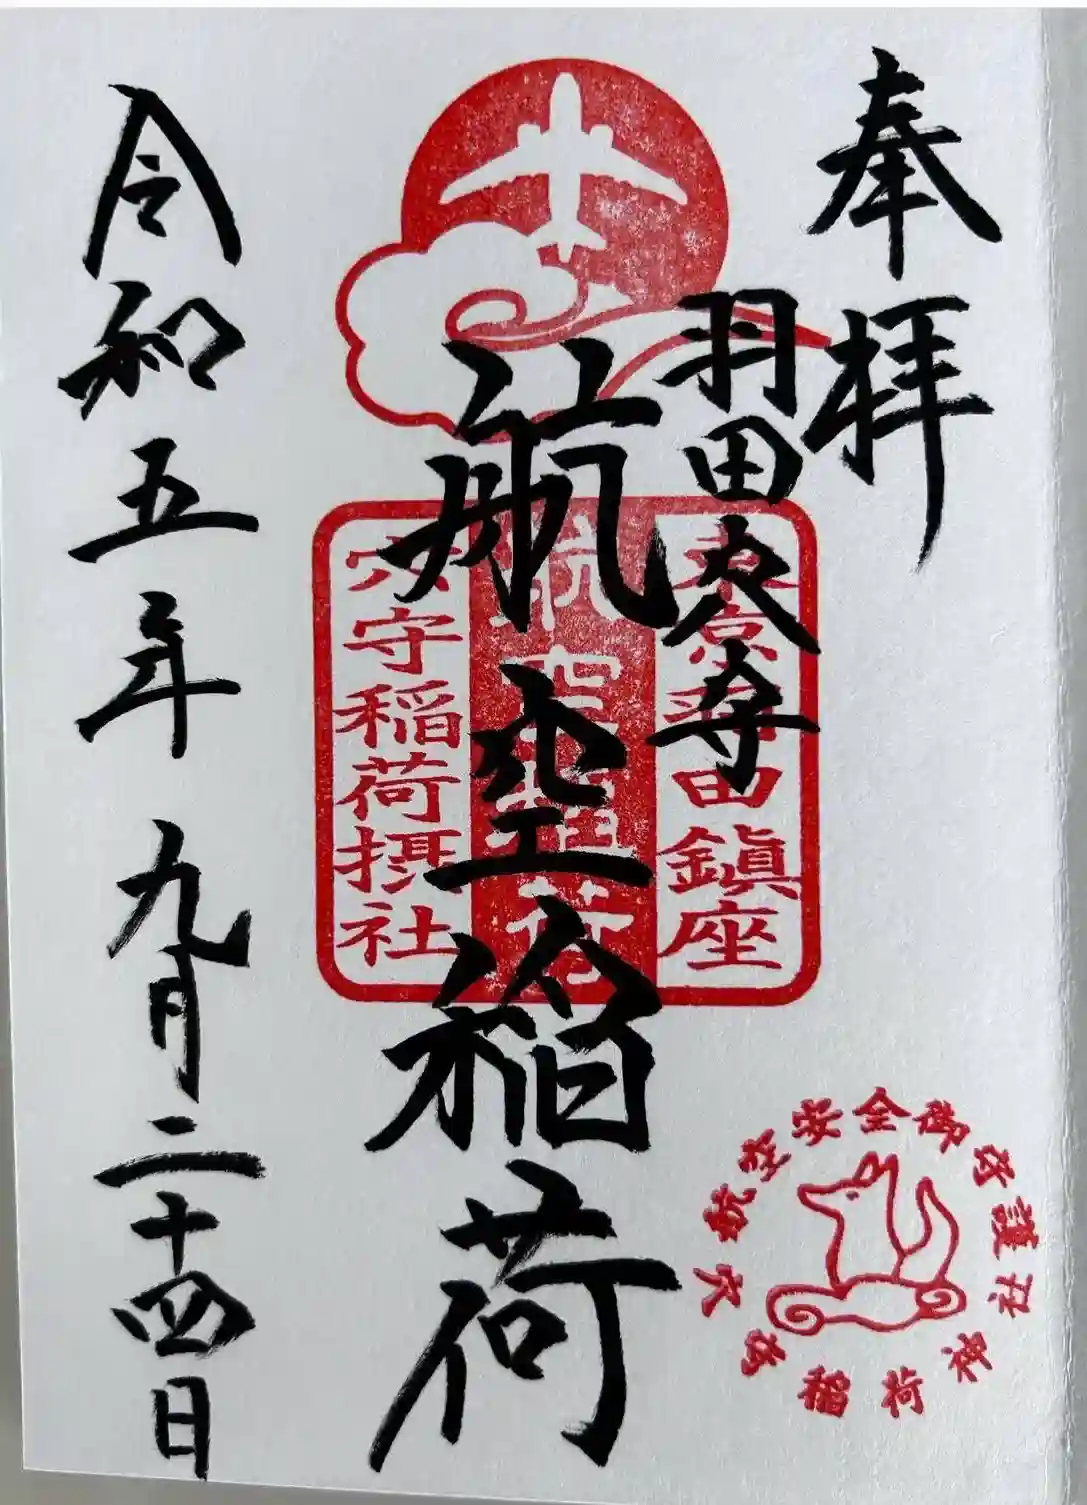 奉拝
羽田大尊
航空稲荷
令和五年九月二十四日
東京羽田鎮座
航空稲荷
穴守稲荷摂社
穴守稲荷神社
航空安全御守護